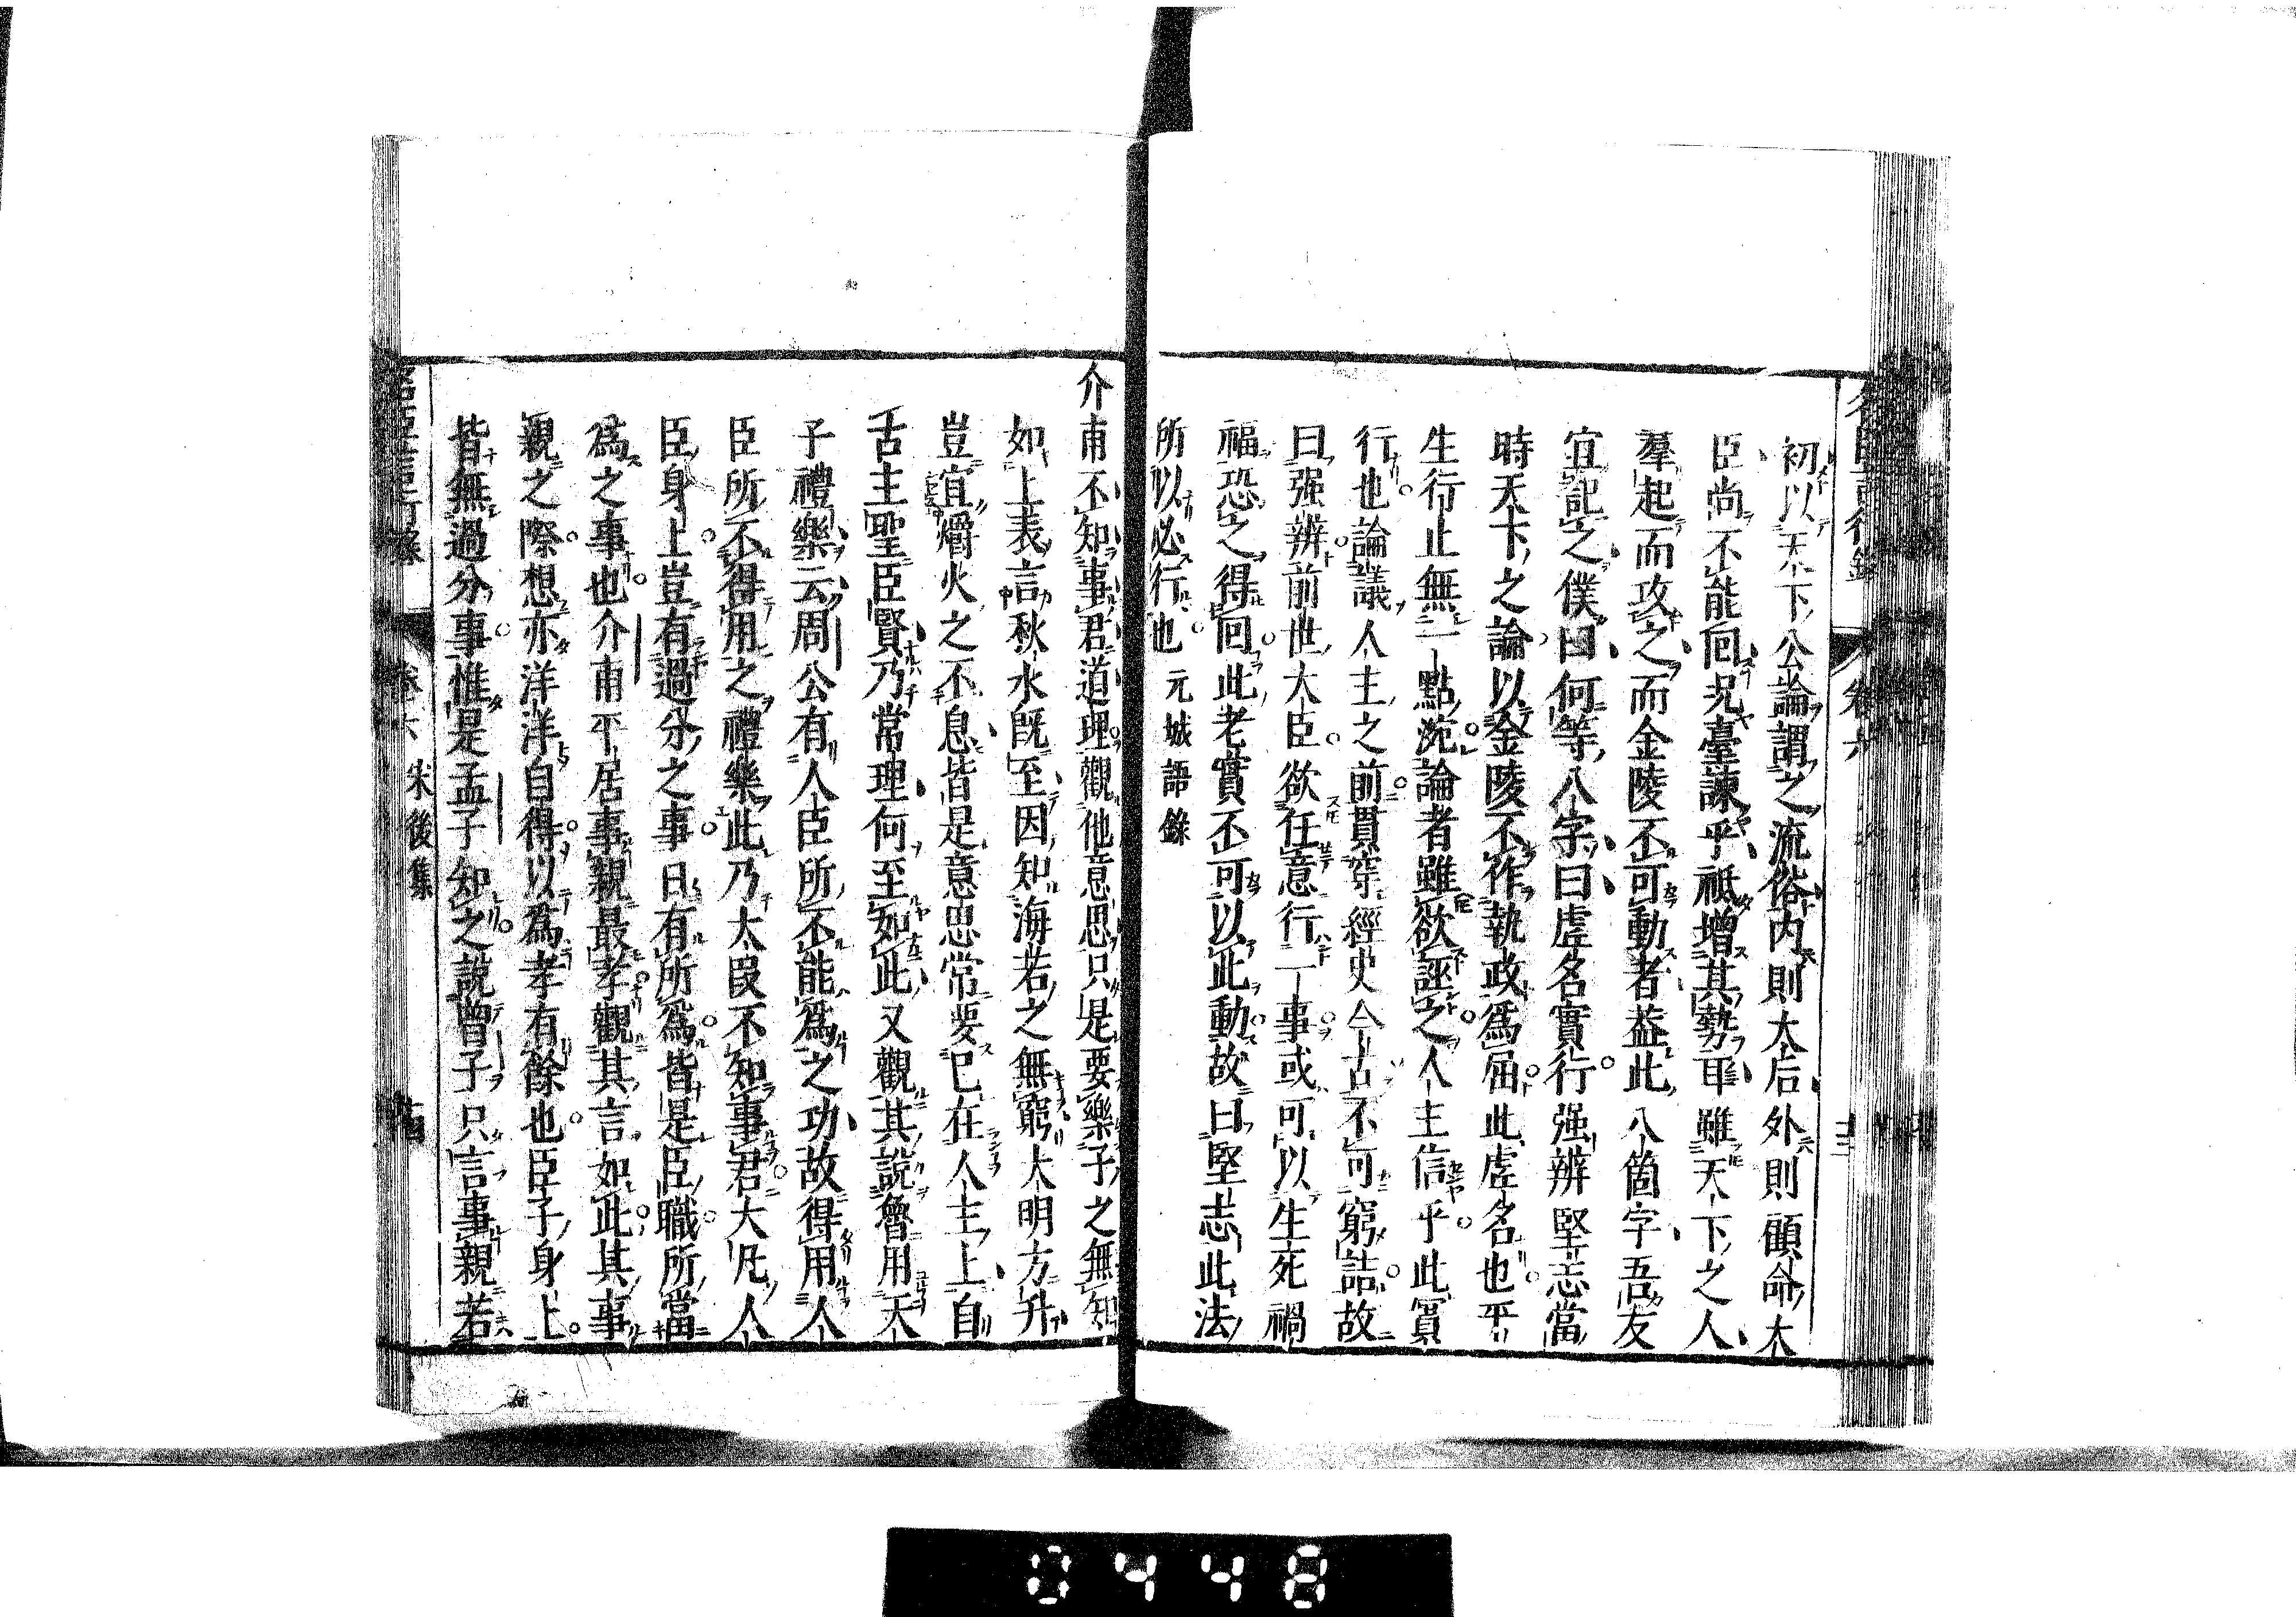 初以天下公論謂之流俗内則太后外則顧命大
臣尚不能回况臺諫乎祗增其勢耳雖天下之人
羣起而攻之而金陵不可動者葢此八箇字吾友
宜記之僕曰何等八字曰虛名實行强辨堅志當
時天下之論以金陵不作執政爲屈此虛名也平
生行止無一點涴論者雖欲誣之人主信乎此實
行也論議人主之前貫穿經史今古不可窮詰故
曰强辨前世大臣欲任意行一事或可以生死禍
福恐之得回此老實不可以此動故曰堅志此法
所以必行也 元城語錄
介甫不知事君道理觀他意思只是要樂子之無知
如上表言秋水既至因知海若之無窮大明方升
豈宜爝火之不息皆是意思常要已在人主上自
古主聖臣賢乃常理何至如此又觀其說魯用天
子禮樂云周公有人臣所不能爲之功故得用人
臣所不得用之禮樂此乃大段不知事君大凡人
臣身上豈有過分之事曰有所爲皆是臣職所當
爲之事也介甫平居事親最孝觀其言如此其事
親之際想亦洋洋自得以爲孝有餘也臣子身上
皆無過分事惟是孟子知之說曾子只言事親若
卷六 宋後集
十四
0448